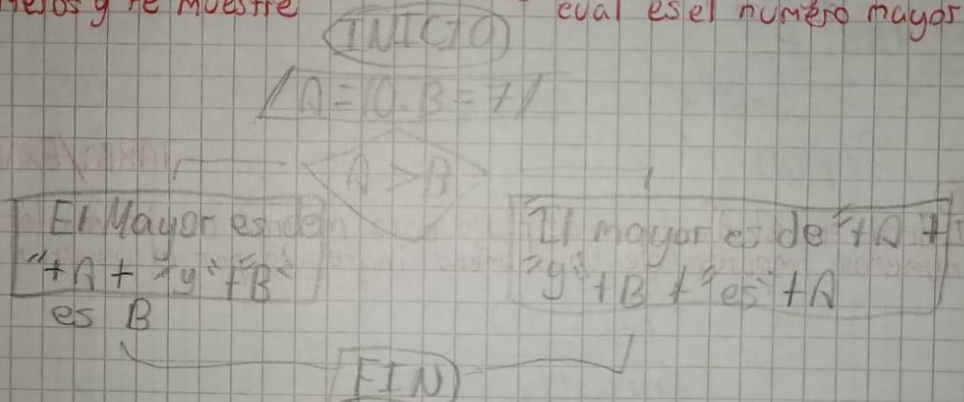 y te muestre eual es el numero mayor
INICIO
A=10. B=7
A > B
El Mayor es de
"+A + "y" + B"
es B
El mayor es de "+A +
"y" + B + "es" + A
FIN